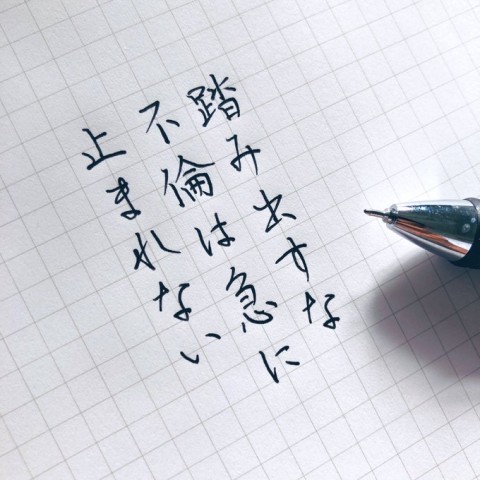 踏み出すな
不倫は急に
止まれない